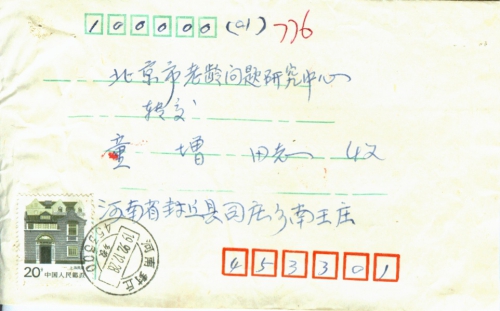 100000 (01) 776
北京市老龄问题研究中心
转交
童增 同志 收
河南省封丘县司庄乡南王庄
453301
20分 中国人民邮政
河南 封丘
453300